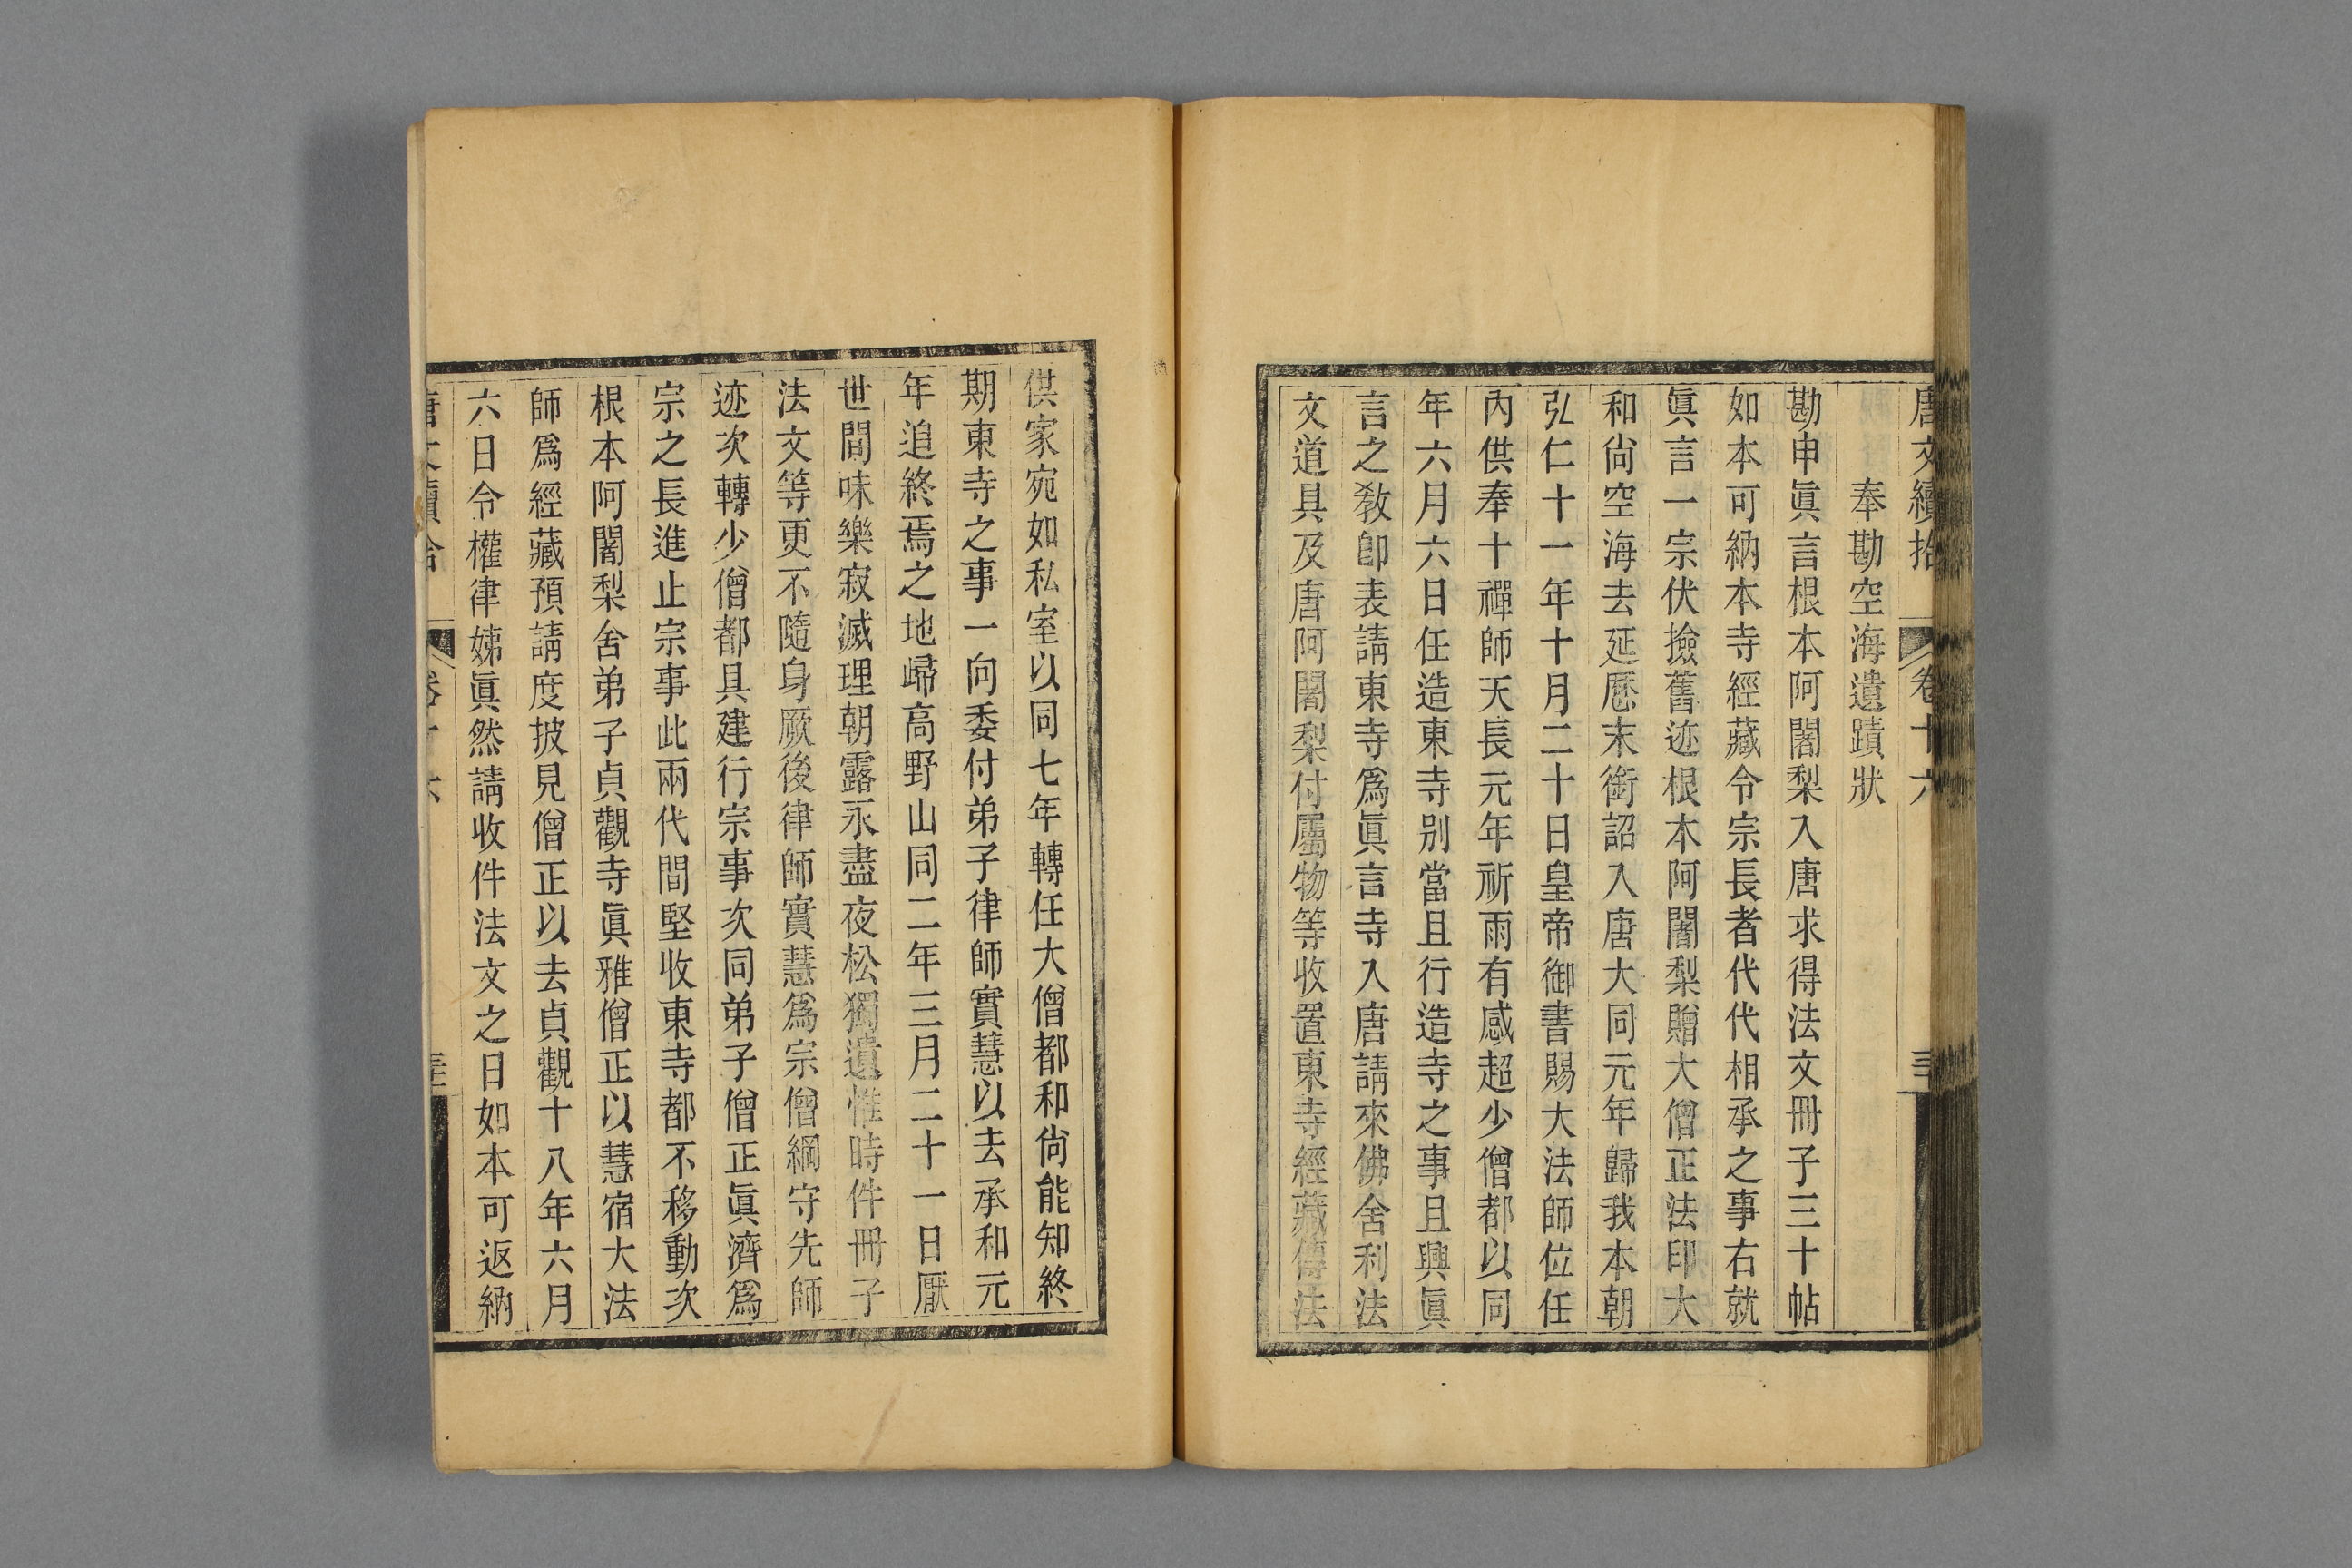 唐文續拾 卷十六
奉勘空海遺蹟狀
勘申眞言根本阿闍梨入唐求得法文冊子三十帖
如本可納本寺經藏令宗長者代代相承之事右就
眞言一宗伏撿舊迹根本阿闍梨贈大僧正法印大
和尙空海去延曆末銜詔入唐大同元年歸我本朝
弘仁十一年十月二十日皇帝御書賜大法師位任
內供奉十禪師天長元年祈雨有感超少僧都以同
年六月六日任造東寺別當且行造寺之事且興眞
言之敎卽表請東寺爲眞言寺入唐請來佛舍利法
文道具及唐阿闍梨付屬物等收置東寺經藏傳法
供家宛如私室以同七年轉任大僧都和尙能知終
期東寺之事一向委付弟子律師實慧以去承和元
年追終焉之地歸高野山同二年三月二十一日厭
世間味樂寂滅理朝露永盡夜松獨遺惟時件冊子
法文等更不隨身厥後律師實慧爲宗僧綱守先師
迹次轉少僧都具建行宗事次同弟子僧正眞濟爲
宗之長進止宗事此兩代間堅收東寺都不移動次
根本阿闍梨舍弟子貞觀寺眞雅僧正以慧宿大法
師爲經藏預請度披見僧正以去貞觀十八年六月
六日令權律娣眞然請收件法文之日如本可返納